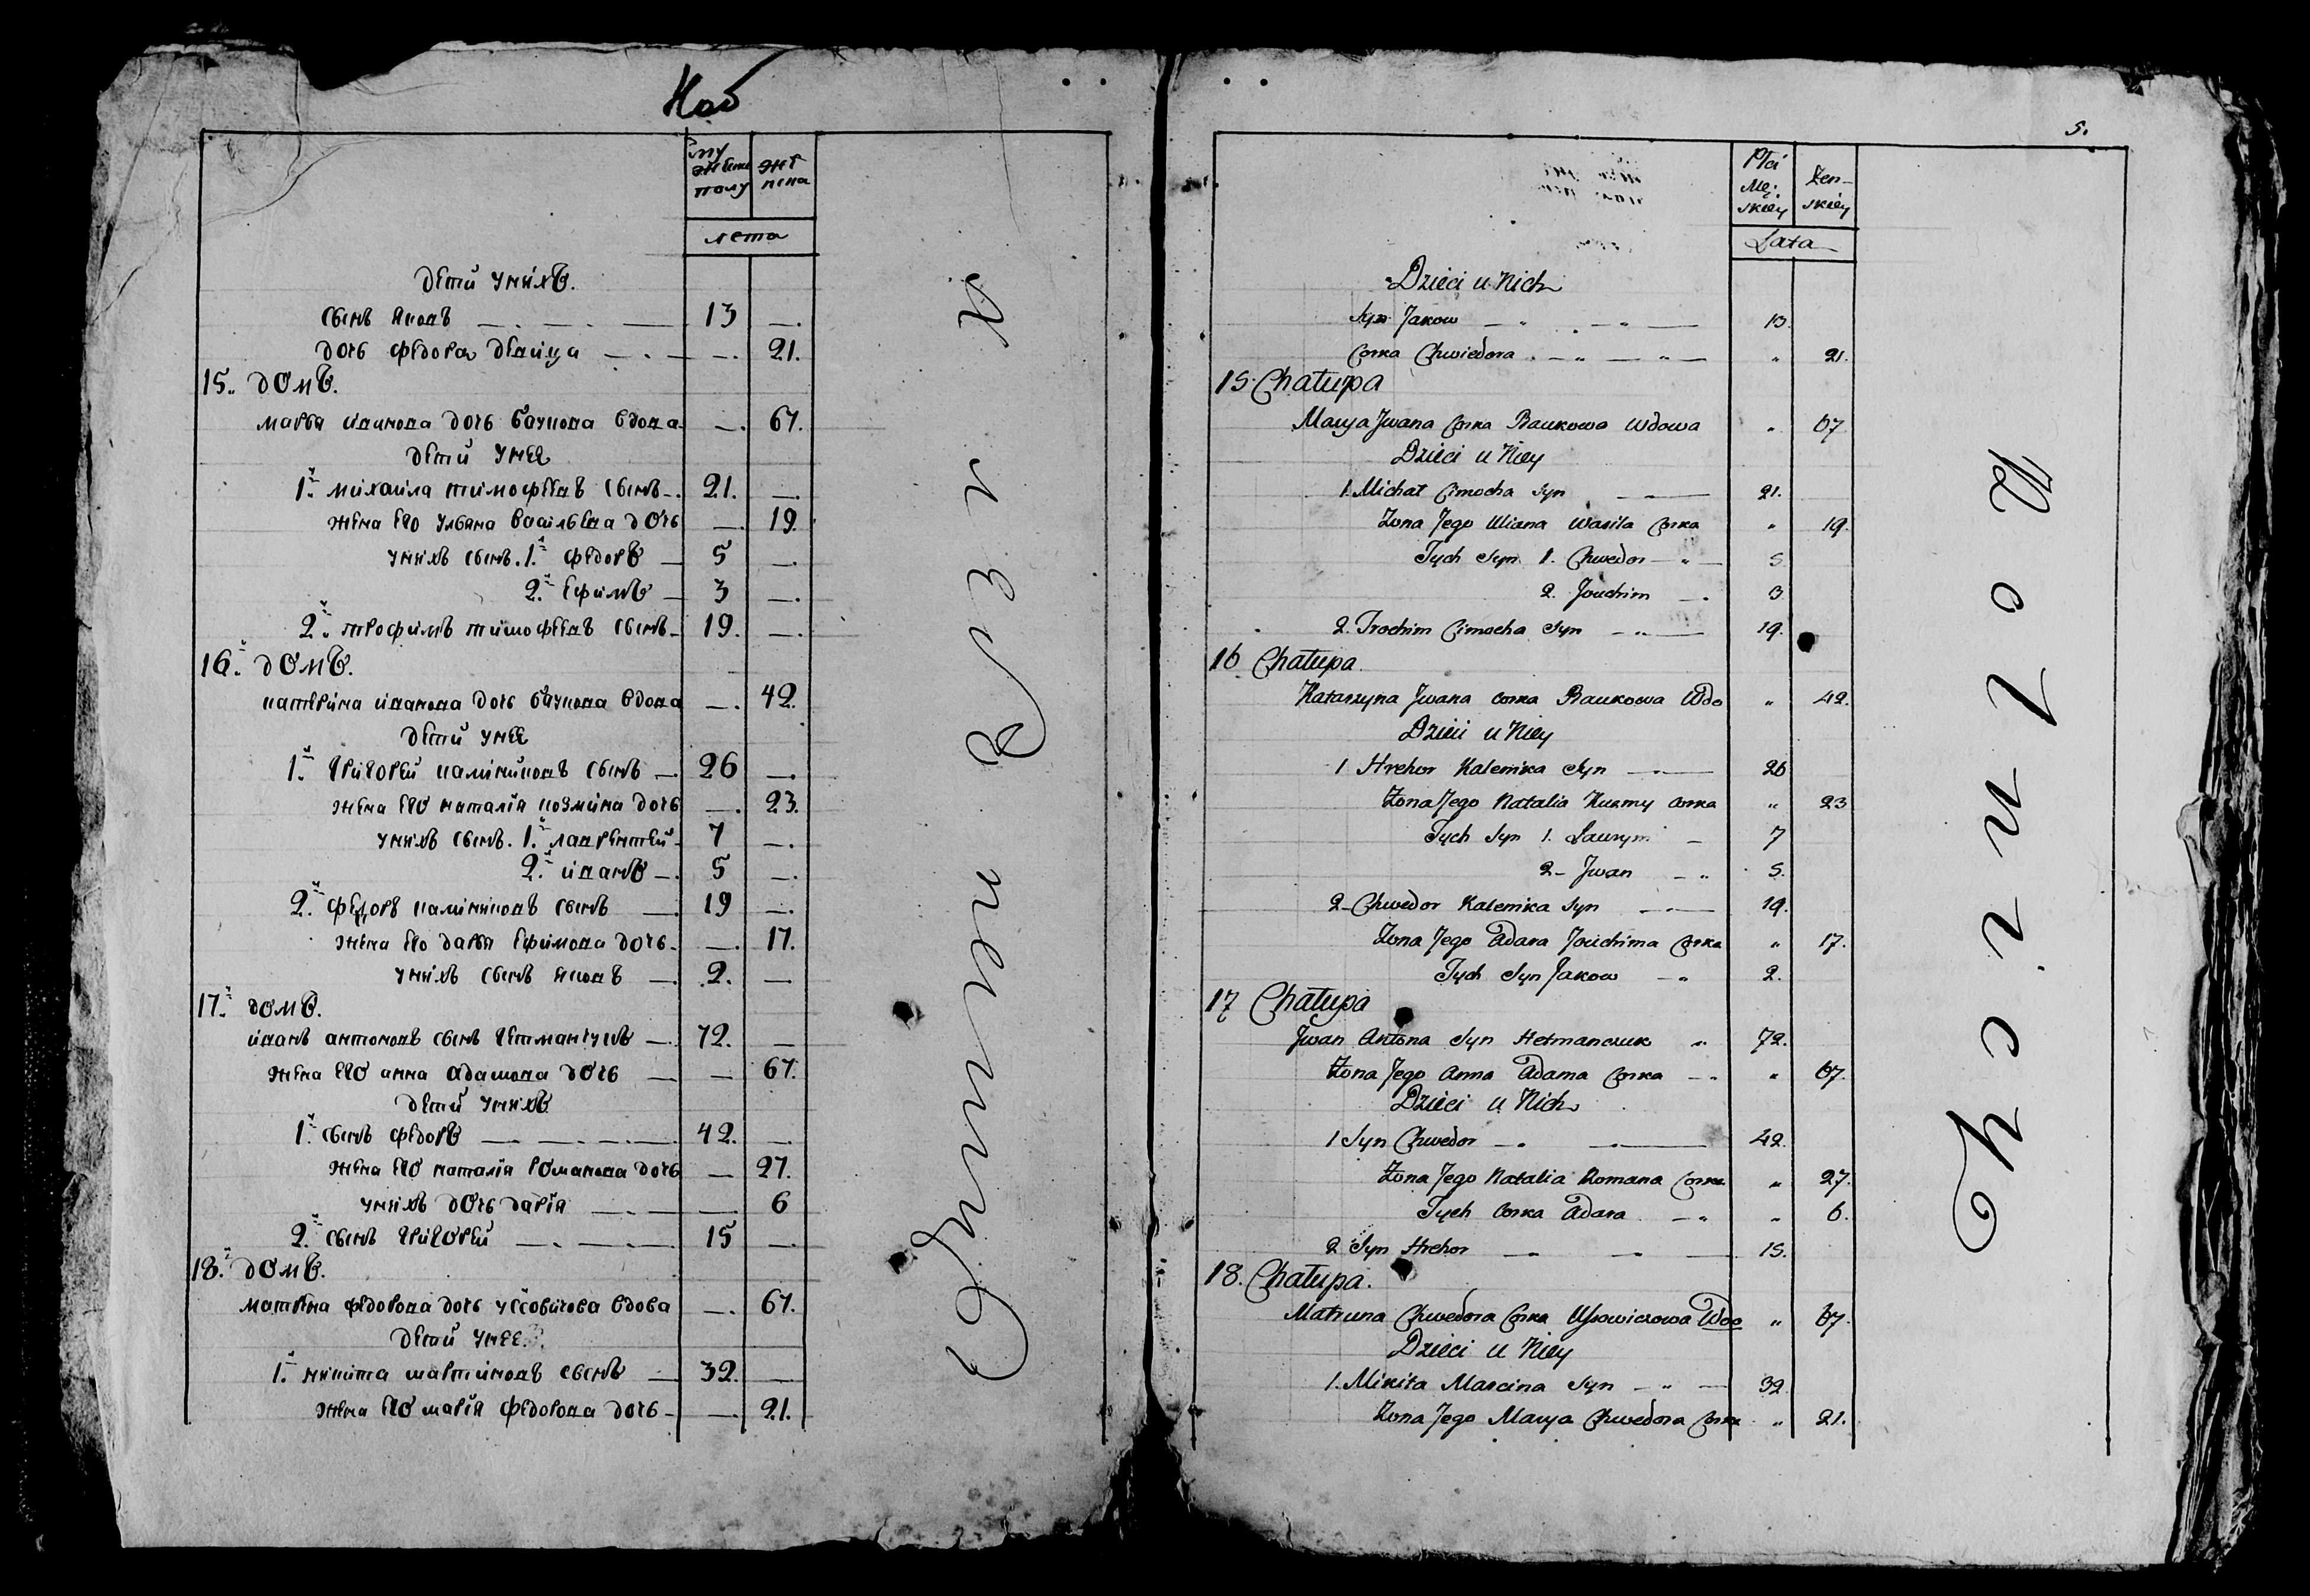 Ноб
му
жеска
полу
же
нска
лета
дети унихъ.
сынъ яковъ — 13 —.
дочь федора девица — —. 21.
15. домъ.
марья иванова дочь баукова вдова —. 67.
дети унее
1й михаила тимофеевъ сынъ — 21. —.
жена его ульяна васильева дочь — 19.
унихъ сынъ. 1й федоръ — 5 —.
2й ефимъ — 3 —.
2й трофимъ тимофеевъ сынъ — 19. —.
16. домъ.
катерина иванова дочь баукова вдова —. 42.
дети унее
1й григорей калиниковъ сынъ — 26 —.
жена его наталiя козмина дочь —. 23.
унихъ сынъ. 1й лаврентей — 7 —.
2й иванъ — 5 —.
2й федоръ калиниковъ сынъ — 19 —.
жена его дарья ефимова дочь — —. 17.
унихъ сынъ яковъ — 2. —
17. домъ.
иванъ антоновъ сынъ гетманчукъ — 72. —
жена его анна адамова дочь — — 67.
дети унихъ
1й сынъ федоръ — 42. —.
жена его наталiя романова дочь — 27.
унихъ дочь дарiя — —. 6
2й сынъ григорей — 15 —.
18. домъ.
матрена федорова дочь уссовичова вдова —. 67.
дети унее.
1й никита мартиновъ сынъ — 32. —
жена его марiя федорова дочь — —. 21.
5.
Płci
Mę-
skiey
Żen-
skiey
Lata
Dzieci u Nich
Syn Jakow — 13.
Corka Chwiedora — " 21.
15. Chałupa
Marya Jwana Corka Baukowa Wdowa " 67
Dzieci u Niey
1. Michał Cimocha Syn — 21.
Żona Jego Uliana Wasila Corka " 19.
Tych Syn 1. Chwedor — 5
2. Jouchim — 3
2. Trochim Cimocha Syn — 19.
16 Chałupa.
Katarzyna Jwana Corka Baukowa Wdo " 42.
Dzieci u Niey
1 Hrehor Kalenika Syn — 26
Żona Jego Natalia Kuzmy Corka " 23
Tych Syn 1. Ławryn — 7
2 - Jwan — 5.
2 - Chwedor Kalenika Syn — 19.
Żona Jego Adara Jouchima Corka " 17.
Tych Syn Jakow — 2.
17 Chałupa
Jwan Antona Syn Hetmanczuk " 72.
Żona Jego Anna Adama Corka — " 67.
Dzieci u Nich
1 Syn Chwedor — 42.
Żona Jego Natalia Romana Corka " 27.
Tych Corka Adara — " 6.
2 Syn Hrehor — 15.
18. Chałupa.
Matruna Chwedora Corka Ussowiczowa Wdo " 67.
Dzieci u Niey
1. Mikita Marcina Syn — 32
Żona Jego Marya Chwedora Corka " 21.